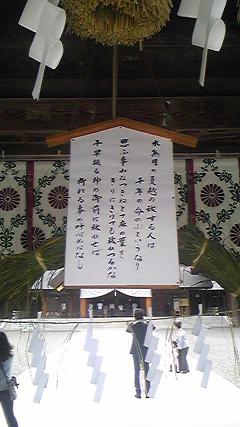 水無月の夏越の祓する人は
千年の命のぶといふなり
思ふ事みなつきねとて麻の葉を
きりにきりても祓へつるかな
千早振る神の御前に祓せば
祈れる事の叶はぬはなし